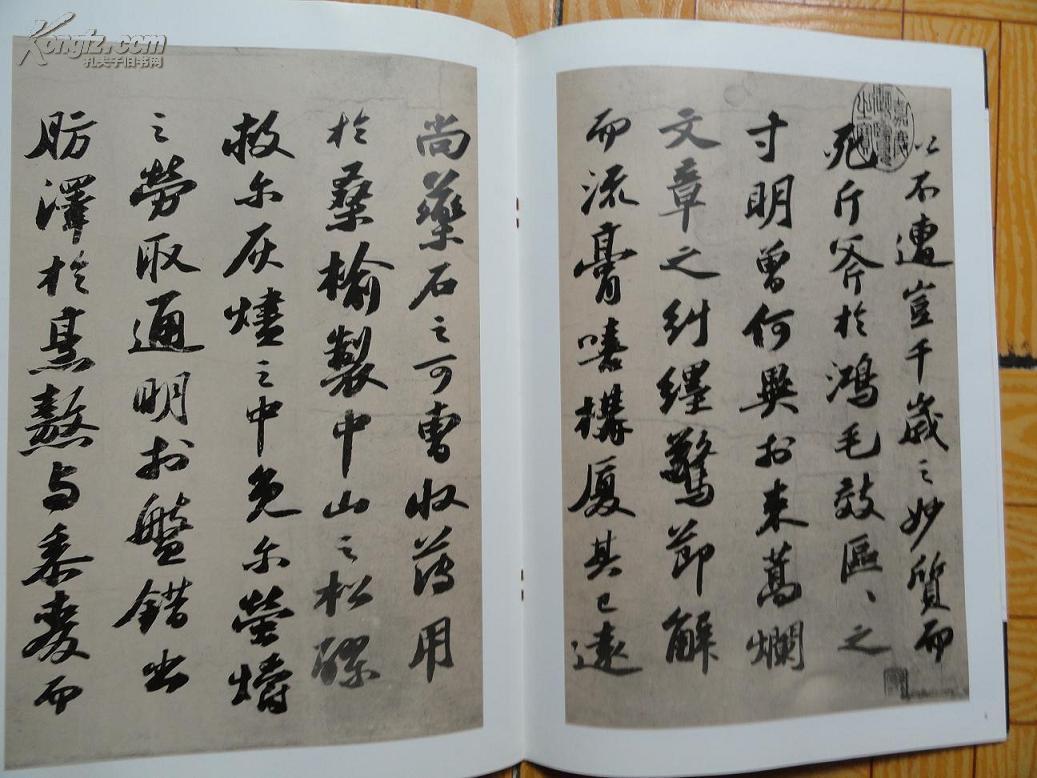 以不遭豈千歲之妙質而
死斤斧於鴻毛效區〻之
寸明曾何異於束蒿爛
文章之糾纏驚節解
而流膏嘻構厦其已遠
尚藥石之可曹收薄用
於桑榆製中山之松醪
救尔灰燼之中免尔螢爝
之勞取通明於盤錯出
肪澤於烹熬与黍麥而
嘉慶御覽之寶
Kongfz.com
孔夫子旧书网